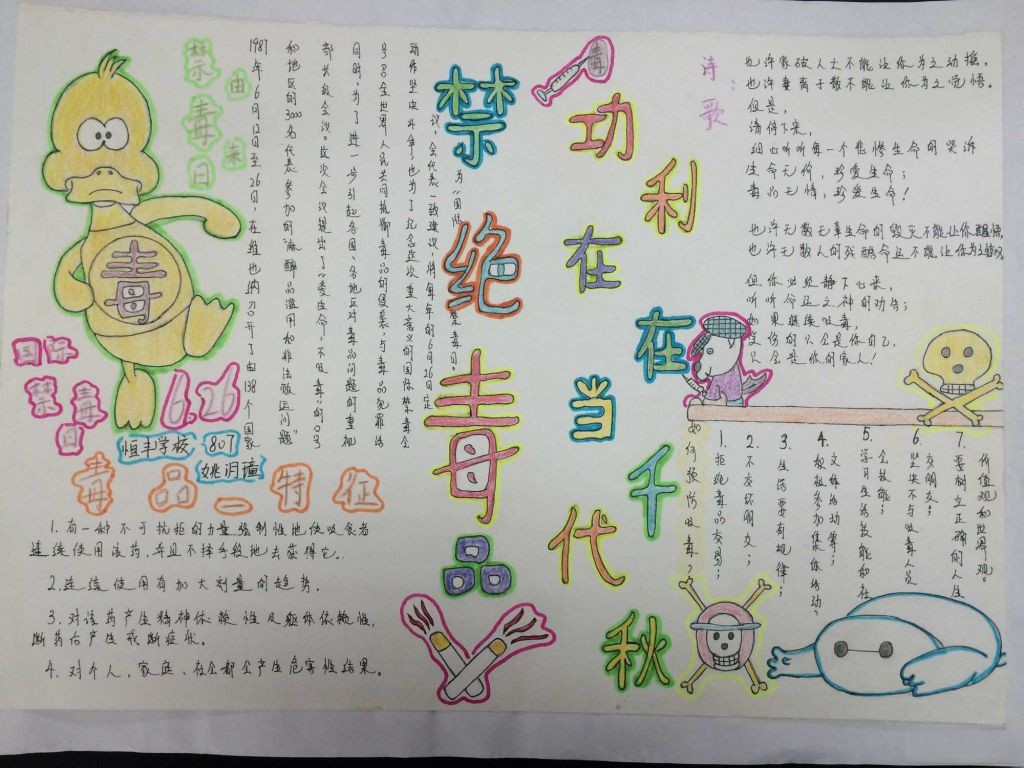 禁毒日
由来
1987年6月12日至26日,在维也纳召开了由138个国家
和地区的3000名代表参加的"麻醉品滥用和非法贩运问题"
部长级会议。这次会议提出了"爱生命,不吸毒"的口号
同时,为了进一步引起各国、各地区对毒品问题的重视
号召全世界人民共同抵御毒品的侵袭,与毒品犯罪活
动作坚决斗争,也为了纪念这次重大意义的国际禁毒会
议,全代表一致建议,将每年的6月26日定
为"国际禁毒日。
毒
国际
禁毒
日
6.26
恒丰学校
807
毒品—特征
1.有一种不可抗拒的力量强制性地使吸食者
连续使用该药,并且不择手段地去获得它。
2.连续使用有加大剂量的趋势。
3.对该药产生精神依赖性及躯体依赖性,
断药后产生戒断症状。
4.对个人、家庭、社会都会产生危害性结果。
禁绝毒品
毒
功在当代
利在千秋
诗歌:
也许家破人亡不能让你为之动摇。
也许妻离子散不能让你为之觉悟。
但是,
请停下来,
细心听听每一个悲惨生命的哭诉
生命无价,珍爱生命;
毒品无情,珍爱生命!
也许无数无辜生命的毁灭不能让你醒悟
也许无数人的残酷命运不能让你为之
但你必须静下心来,
听听命运之神的劝告;
如果继续吸毒,
受伤的只会是你自己,
只会是你的家人!
如何预防吸毒?
1.拒绝毒品交易;
2.不交坏朋友;
3.生活要有规律;
4.积极参加集体活动、
文体活动等;
5.学习生活技能和社
会技能;
6.坚决不与吸毒人员
交朋友;
7.要树立正确的人生
价值观和世界观。